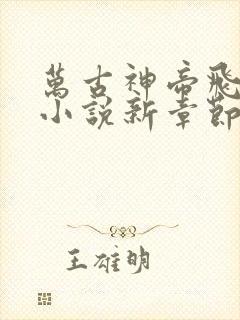 萬古神帝飛
小說新章節
王雄明